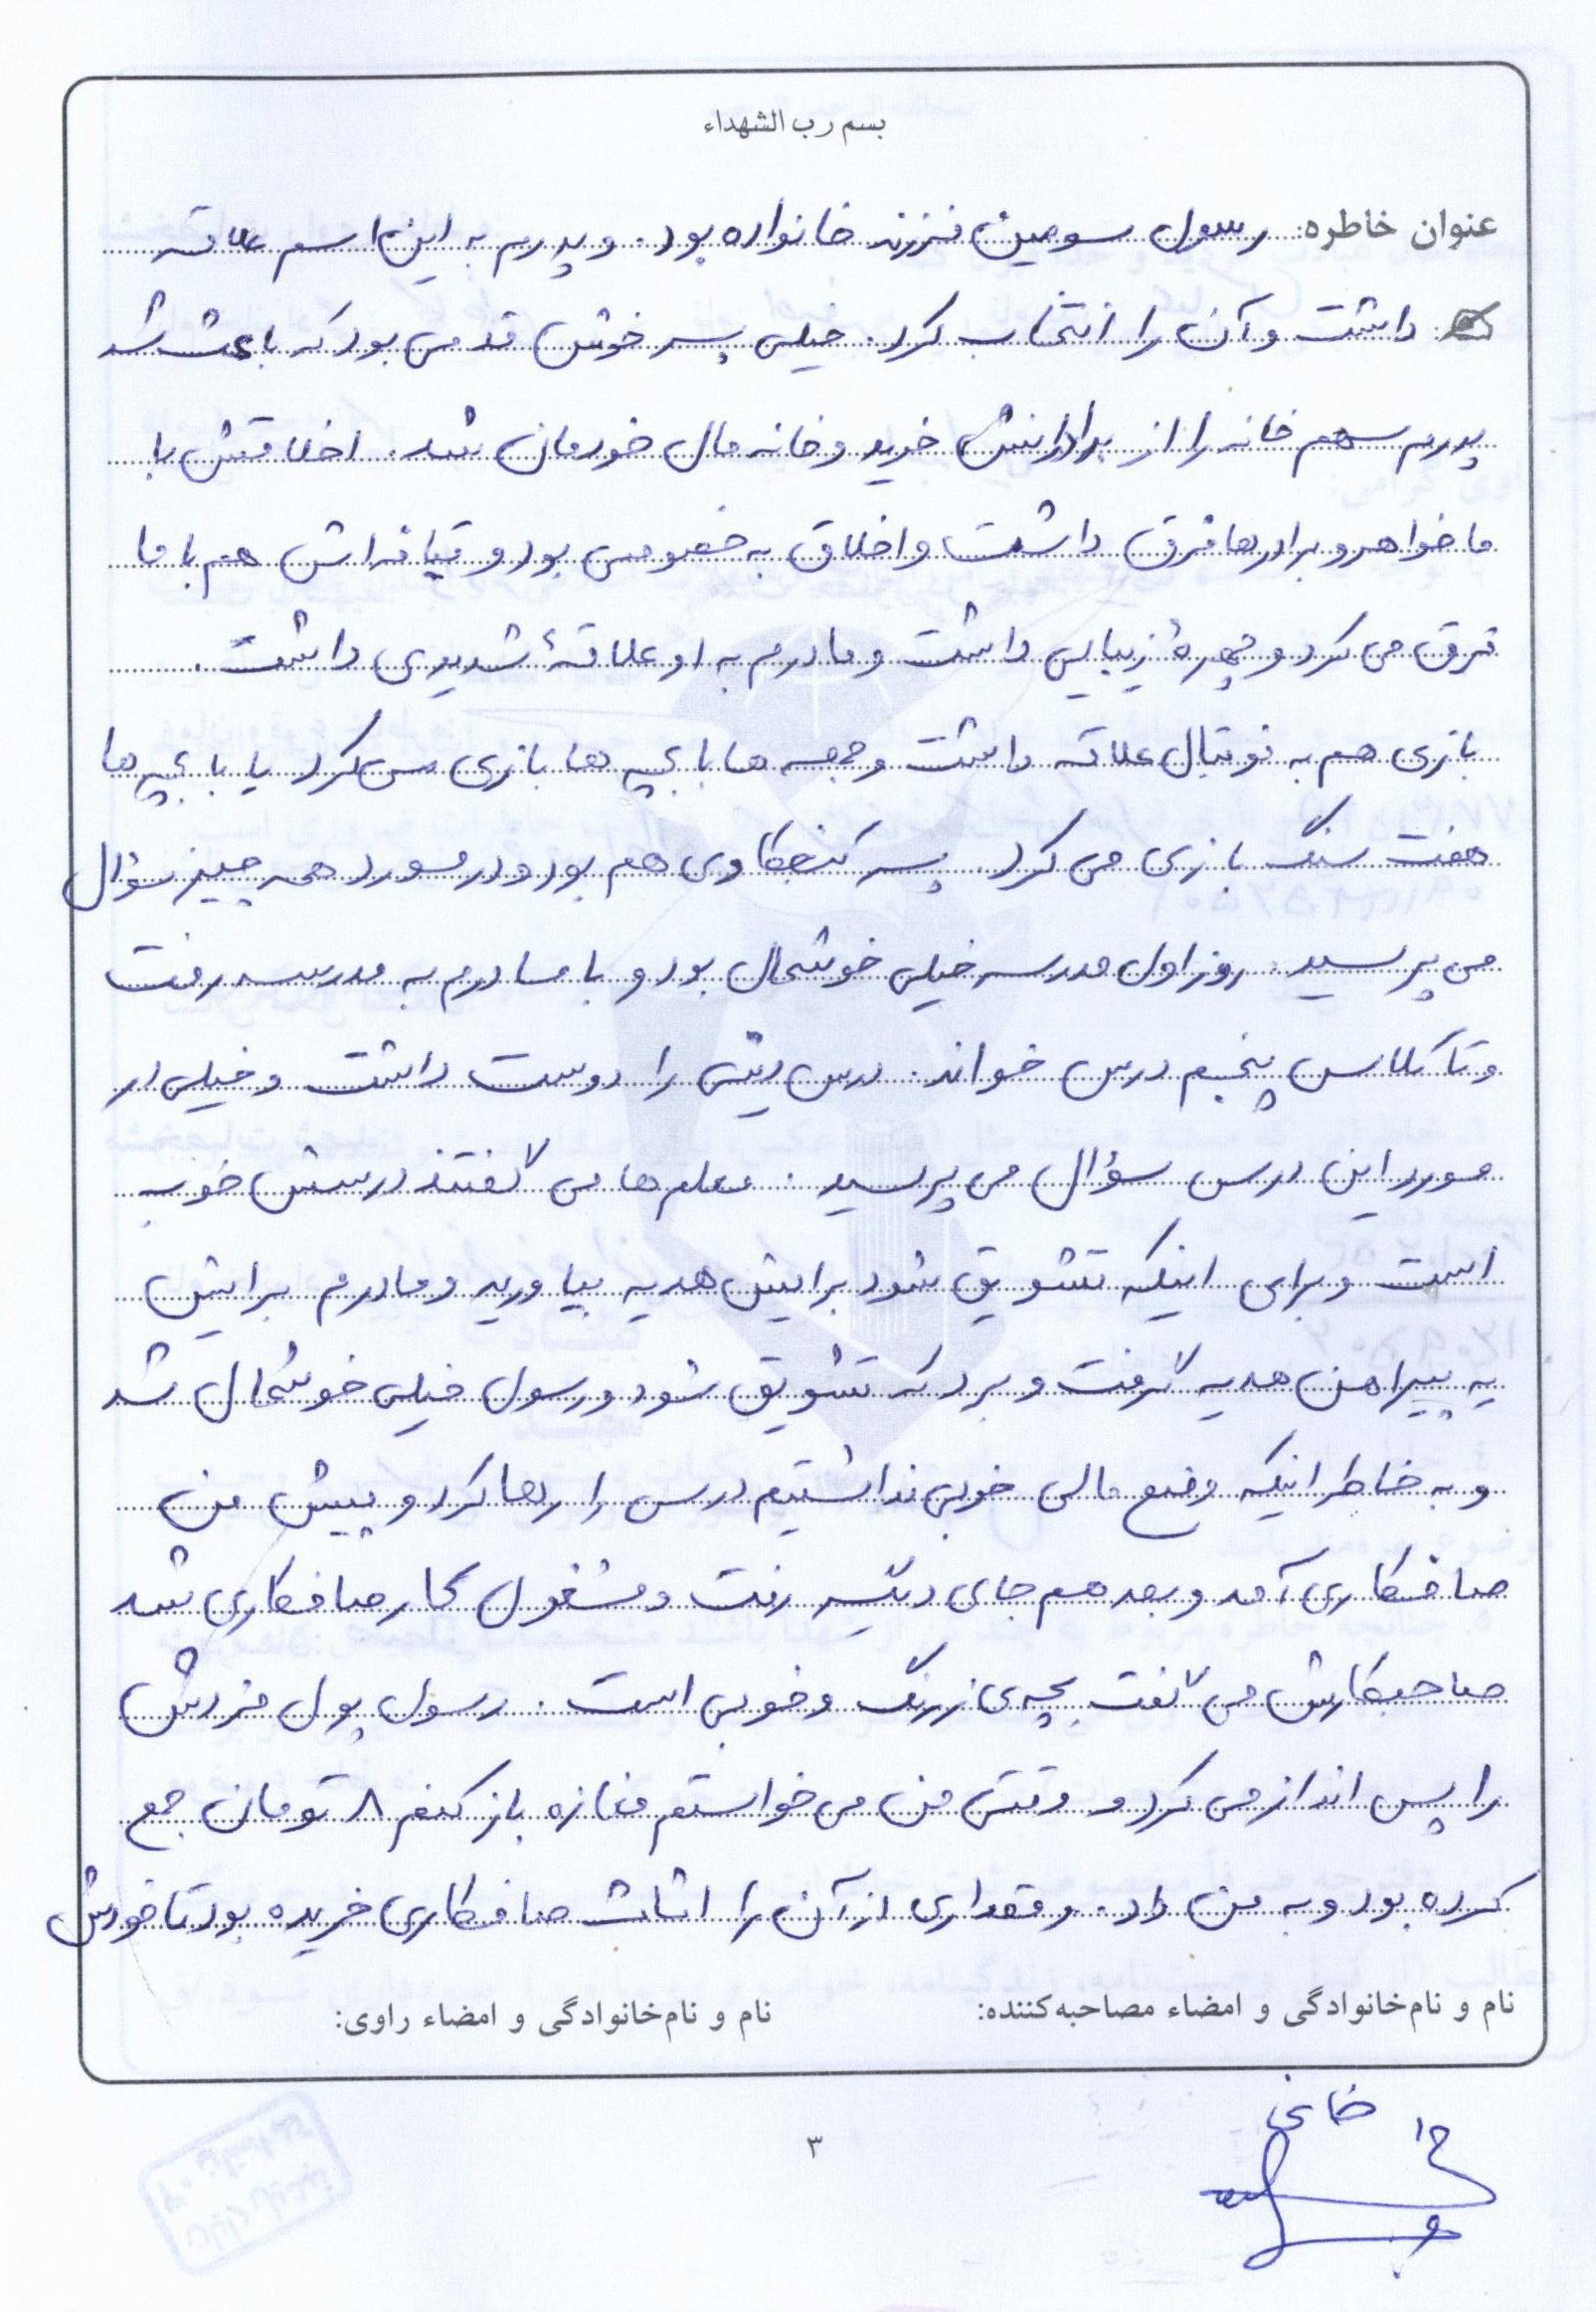 بسم رب الشهداء
عنوان خاطره: رسول سومین فرزند خانواده بود. و پدرم به این اسم علاقه
داشت و آن را انتخاب کرد. خیلی پسر خوش قدمی بود که باعث شد
پدرم سهم خانه را از برادرانش خرید و خانه مال خودمان شد. اخلاقش با
ما خواهر و برادرها فرق داشت و اخلاق به خصوصی بود و قیافه اش هم با ما
فرق می کرد و چهرهٔ زیبایی داشت و مادرم به او علاقهٔ شدیدی داشت.
بازی هم به فوتبال علاقه داشت و جمعه ها با بچه ها بازی می کرد یا با بچه ها
هفت سنگ بازی می کرد. پسر کنجکاوی هم بود و در مورد همه چیز سؤال
می پرسید. روز اول مدرسه خیلی خوشحال بود و با مادرم به مدرسه رفت
و تا کلاس پنجم درس خواند. درس دینی را دوست داشت و خیلی در
مورد این درس سؤال می پرسید. معلم ها می گفتند درسش خوب
است و برای اینکه تشویق شود برایش هدیه بیاورید و مادرم برایش
یه پیراهن هدیه گرفت و برد که تشویق شود و رسول خیلی خوشحال شد
و به خاطر اینکه وضع مالی خوبی نداشتیم درس را رها کرد و پیش من
صافکاری آمد و بعد هم جای دیگر رفت و مشغول کار صافکاری شد
صاحبکارش می گفت بچه ی زرنگ و خوبی است. رسول پول مزدش
را پس انداز می کرد و وقتی من می خواستم مغازه باز کنم ۸ تومان جمع
کرده بود و به من داد. و مقداری از آن را اثاث صافکاری خریده بود تا خودش
نام و نام خانوادگی و امضاء مصاحبه کننده: نام و نام خانوادگی و امضاء راوی:
۳